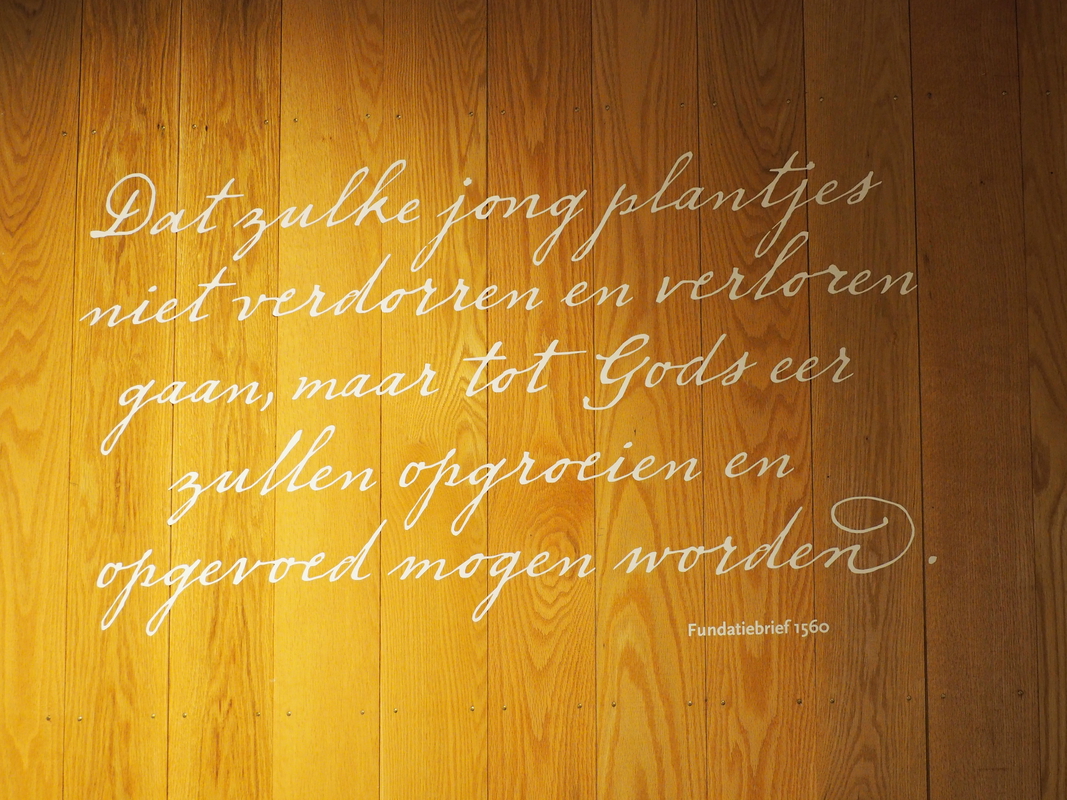 Dat zulke jong plantjes
niet verdorren en verloren
gaan, maar tot Gods eer
zullen opgroeien en
opgevoed mogen worden.
Fundatiebrief 1560